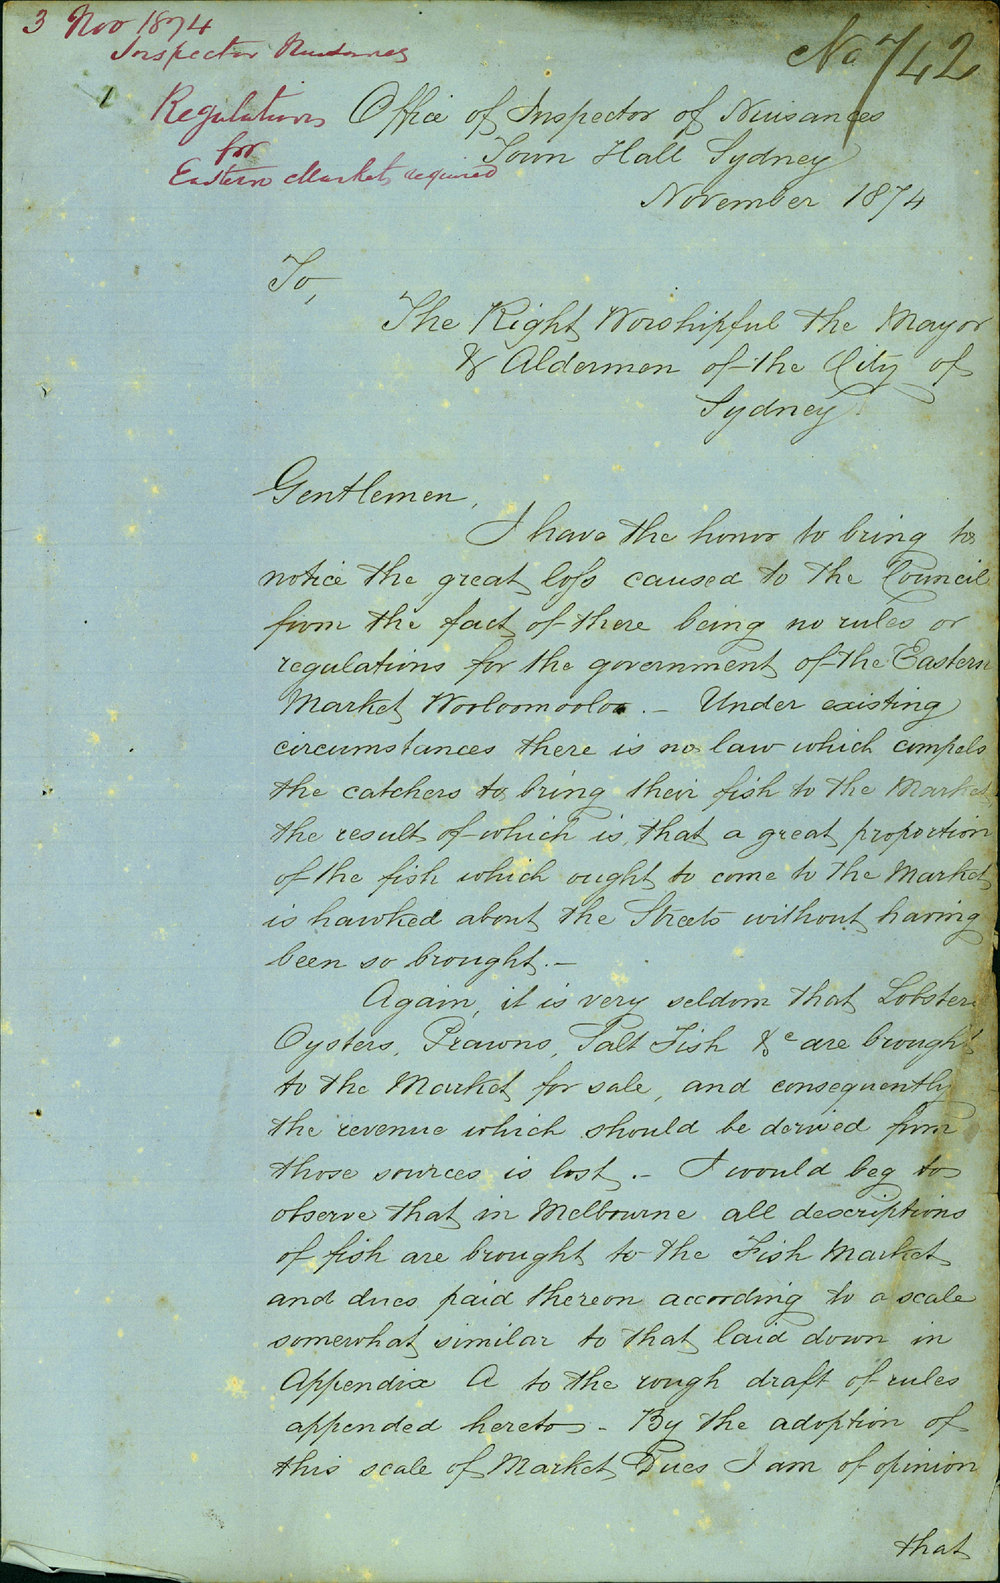 3 Nov 1874
Inspector Nuisances
No 742
Regulations
for
Eastern Market required
Office of Inspector of Nuisances
Town Hall Sydney
November 1874
To,
The Right Worshipful the Mayor
& Aldermen of the City of
Sydney
Gentlemen,
I have the honor to bring to
notice the great loss caused to the Council
from the fact of there being no rules or
regulations for the government of the Eastern
Market Wooloomooloo. — Under existing
circumstances there is no law which compels
the catchers to bring their fish to the Market
the result of which is, that a great proportion
of the fish which ought to come to the Market
is hawked about the Streets without having
been so brought. —
Again, it is very seldom that Lobsters
Oysters, Prawns, Salt Fish &c are brought
to the Market for sale, and consequently
the revenue which should be derived from
those sources is lost. — I would beg to
observe that in Melbourne all descriptions
of fish are brought to the Fish Market
and dues paid thereon according to a scale
somewhat similar to that laid down in
Appendix A to the rough draft of rules
appended hereto - By the adoption of
this scale of Market Dues I am of opinion
that